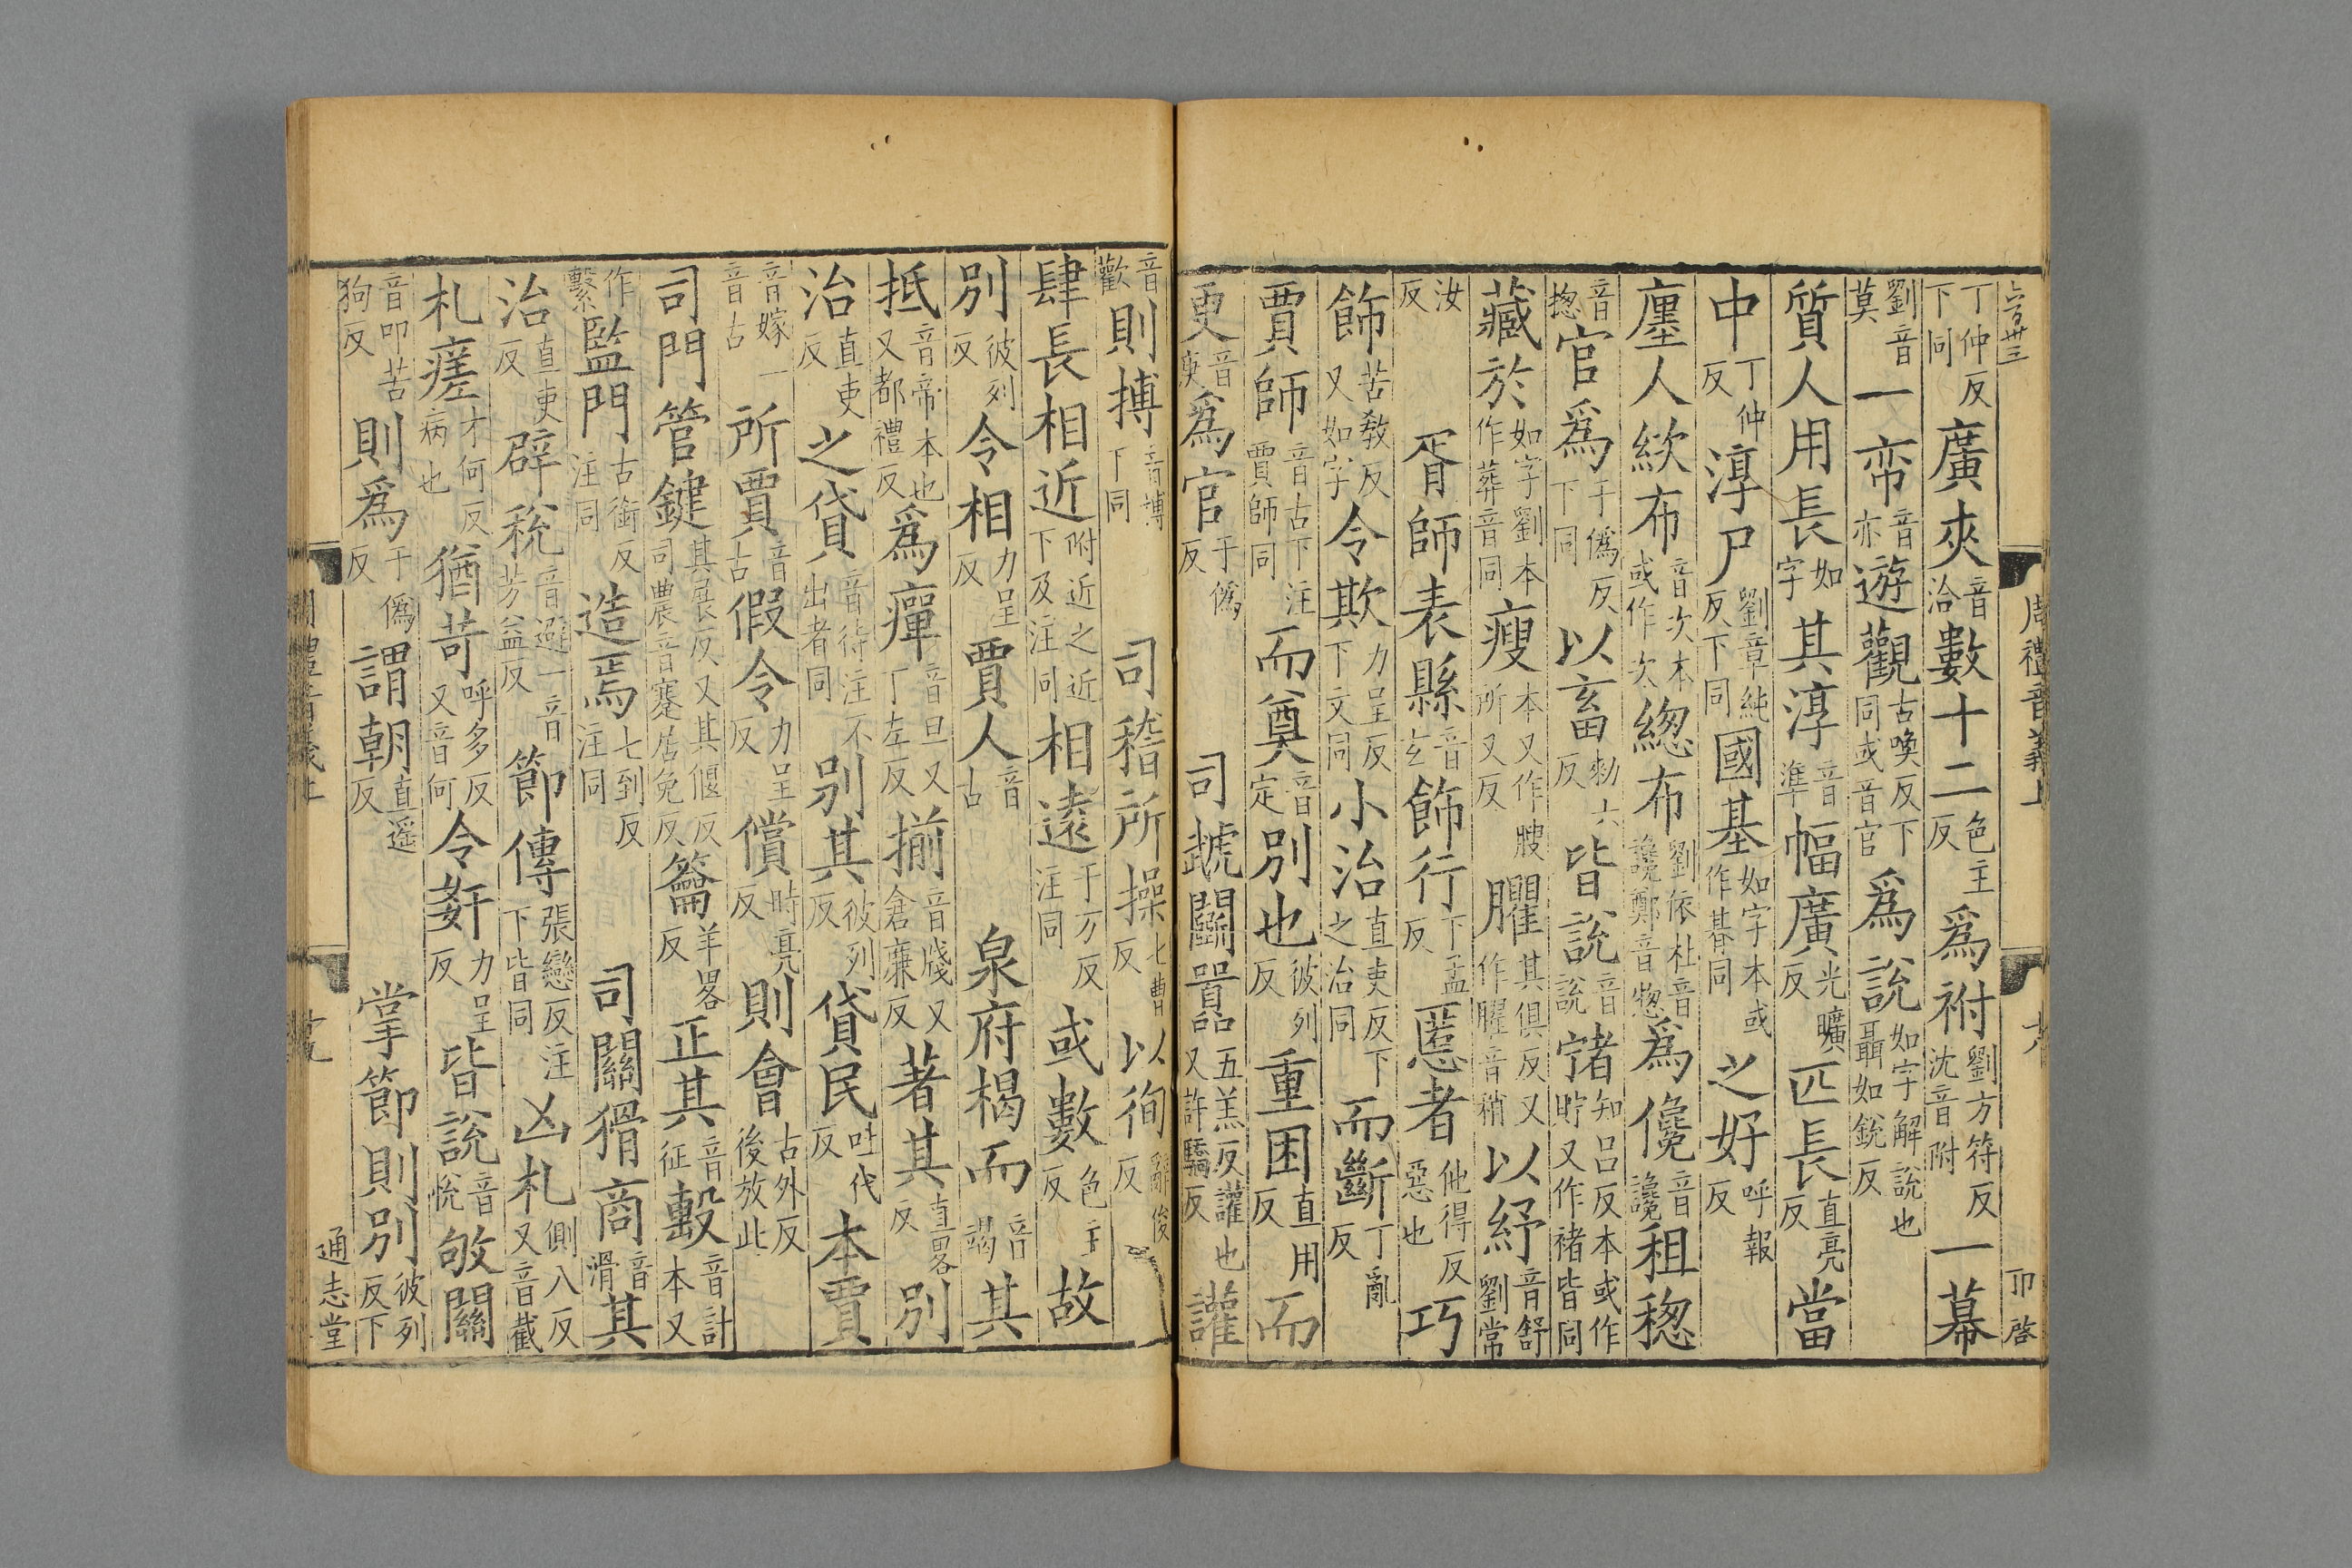 周禮音義上
丁仲反下同廣夾音洽數十二色主反爲祔劉方符反沈音附一幕
劉音莫一帟音亦遊觀古喚反下同或音官爲說如字解說也聶如銳反
質人用長如字其淳音準幅廣光曠反匹長直亮反當
中丁仲反淳尸劉章純反下同國基如字本或作朞同之好呼報反
廛人絘布音次本或作次緫布劉依杜音儳鄭音惣爲儳音讒租稯
音揔官爲于僞反下同以畜勑六反皆說音說諸知呂反本或作貯又作褚皆同
藏於如字劉本作葬音同瘦本又作膄所又反臞其俱反又作臛音稍以紓音舒劉常
汝反　胥師表縣音玄飾行下孟反慝者他得反惡也巧
飾苦敎反又如字令欺力呈反下文同小治直吏反下之治同而斷丁亂反
賈師音古下注賈師同而奠音定別也彼列反重困直用反而
更音庚爲官于僞反　司虣鬭囂五羔反讙也又許驕反讙
音歡則搏音博下同　司稽所操七曹反以徇辭俊反
肆長相近附近之近下及注同相遠于万反注同或數色主反故
別彼列反令相力呈反賈人音古　泉府楬而音竭其
抵音帝本也又都禮反爲癉音旦又丁左反揃音牋又倉廉反著其直畧反別
治直吏反之貸音待注不出者同別其彼列反貸民吐代反本賈
音嫁一音古所賈音古假令力呈反償時亮反則會古外反後放此
司門管鍵其展反又其偃反司農音蹇居免反籥羊畧反正其音征轂音計本又
作繫監門古銜反注同造焉七到反注同　司關猾商音滑其
治直吏反辟稅音避一音芳益反節傳張戀反注下皆同凶札側八反又音截
札瘥才何反病也猶苛呼多反又音何令姧力呈反皆說音悅敂關
音叩苦狗反則爲于僞反謂朝直遥反　掌節則別彼列反下
通志堂